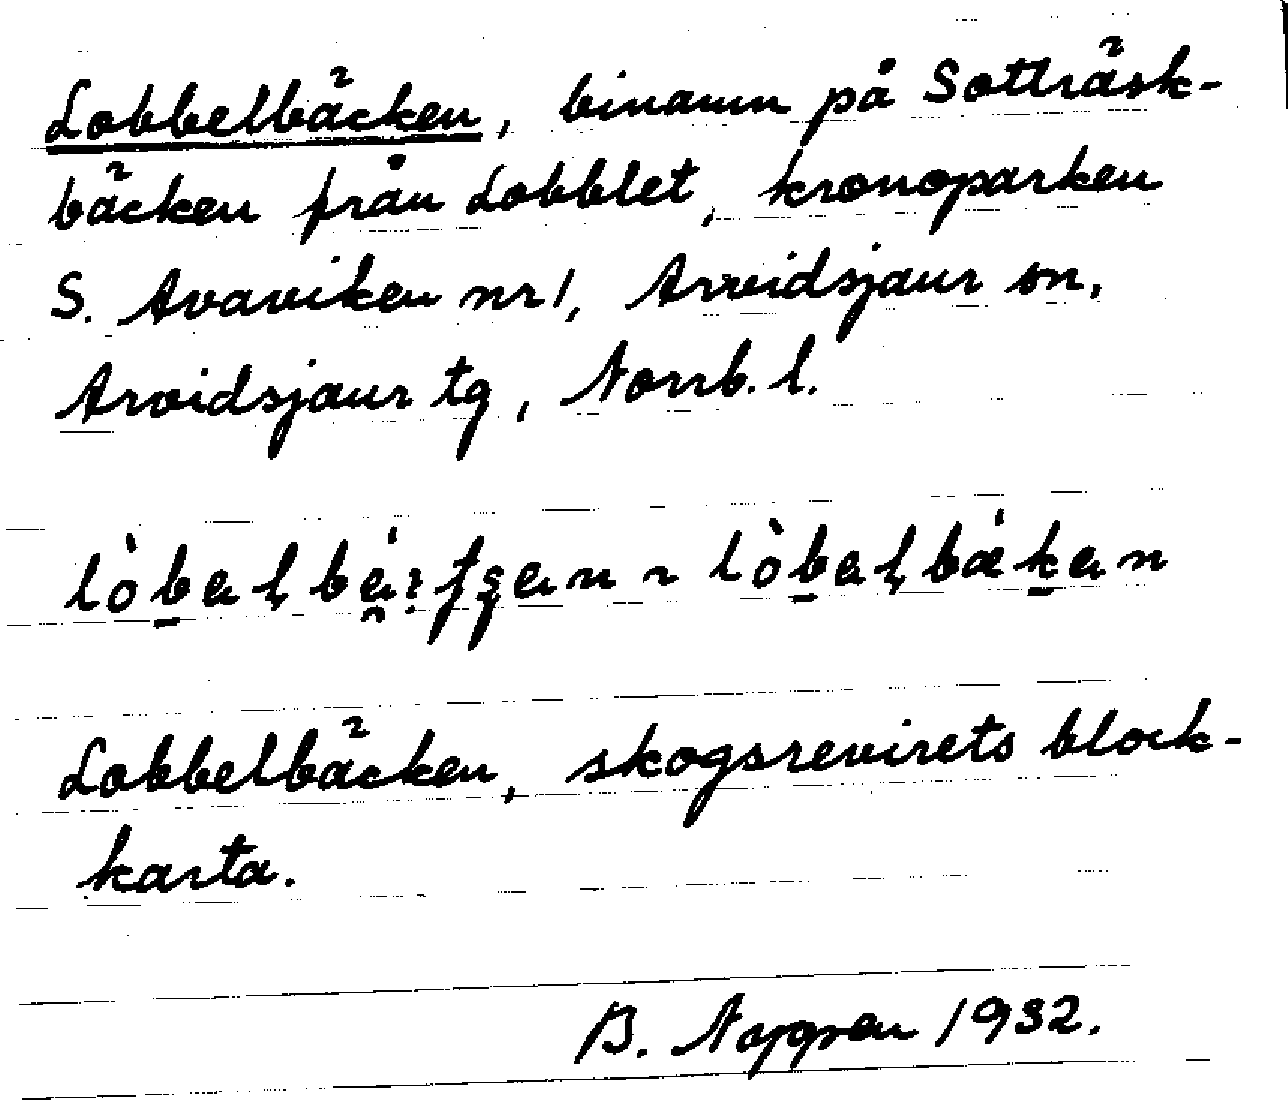 Lobbelbäcken, binamn på Sotträsk-
bäcken från Lobblet, kronoparken
S. Avaviken nr 1, Arvidsjaur sn,
Arvidsjaur tg, Norrb. l.
Lobbelbäcken, skogsrevirets block-
karta.
B. Nygren 1932.